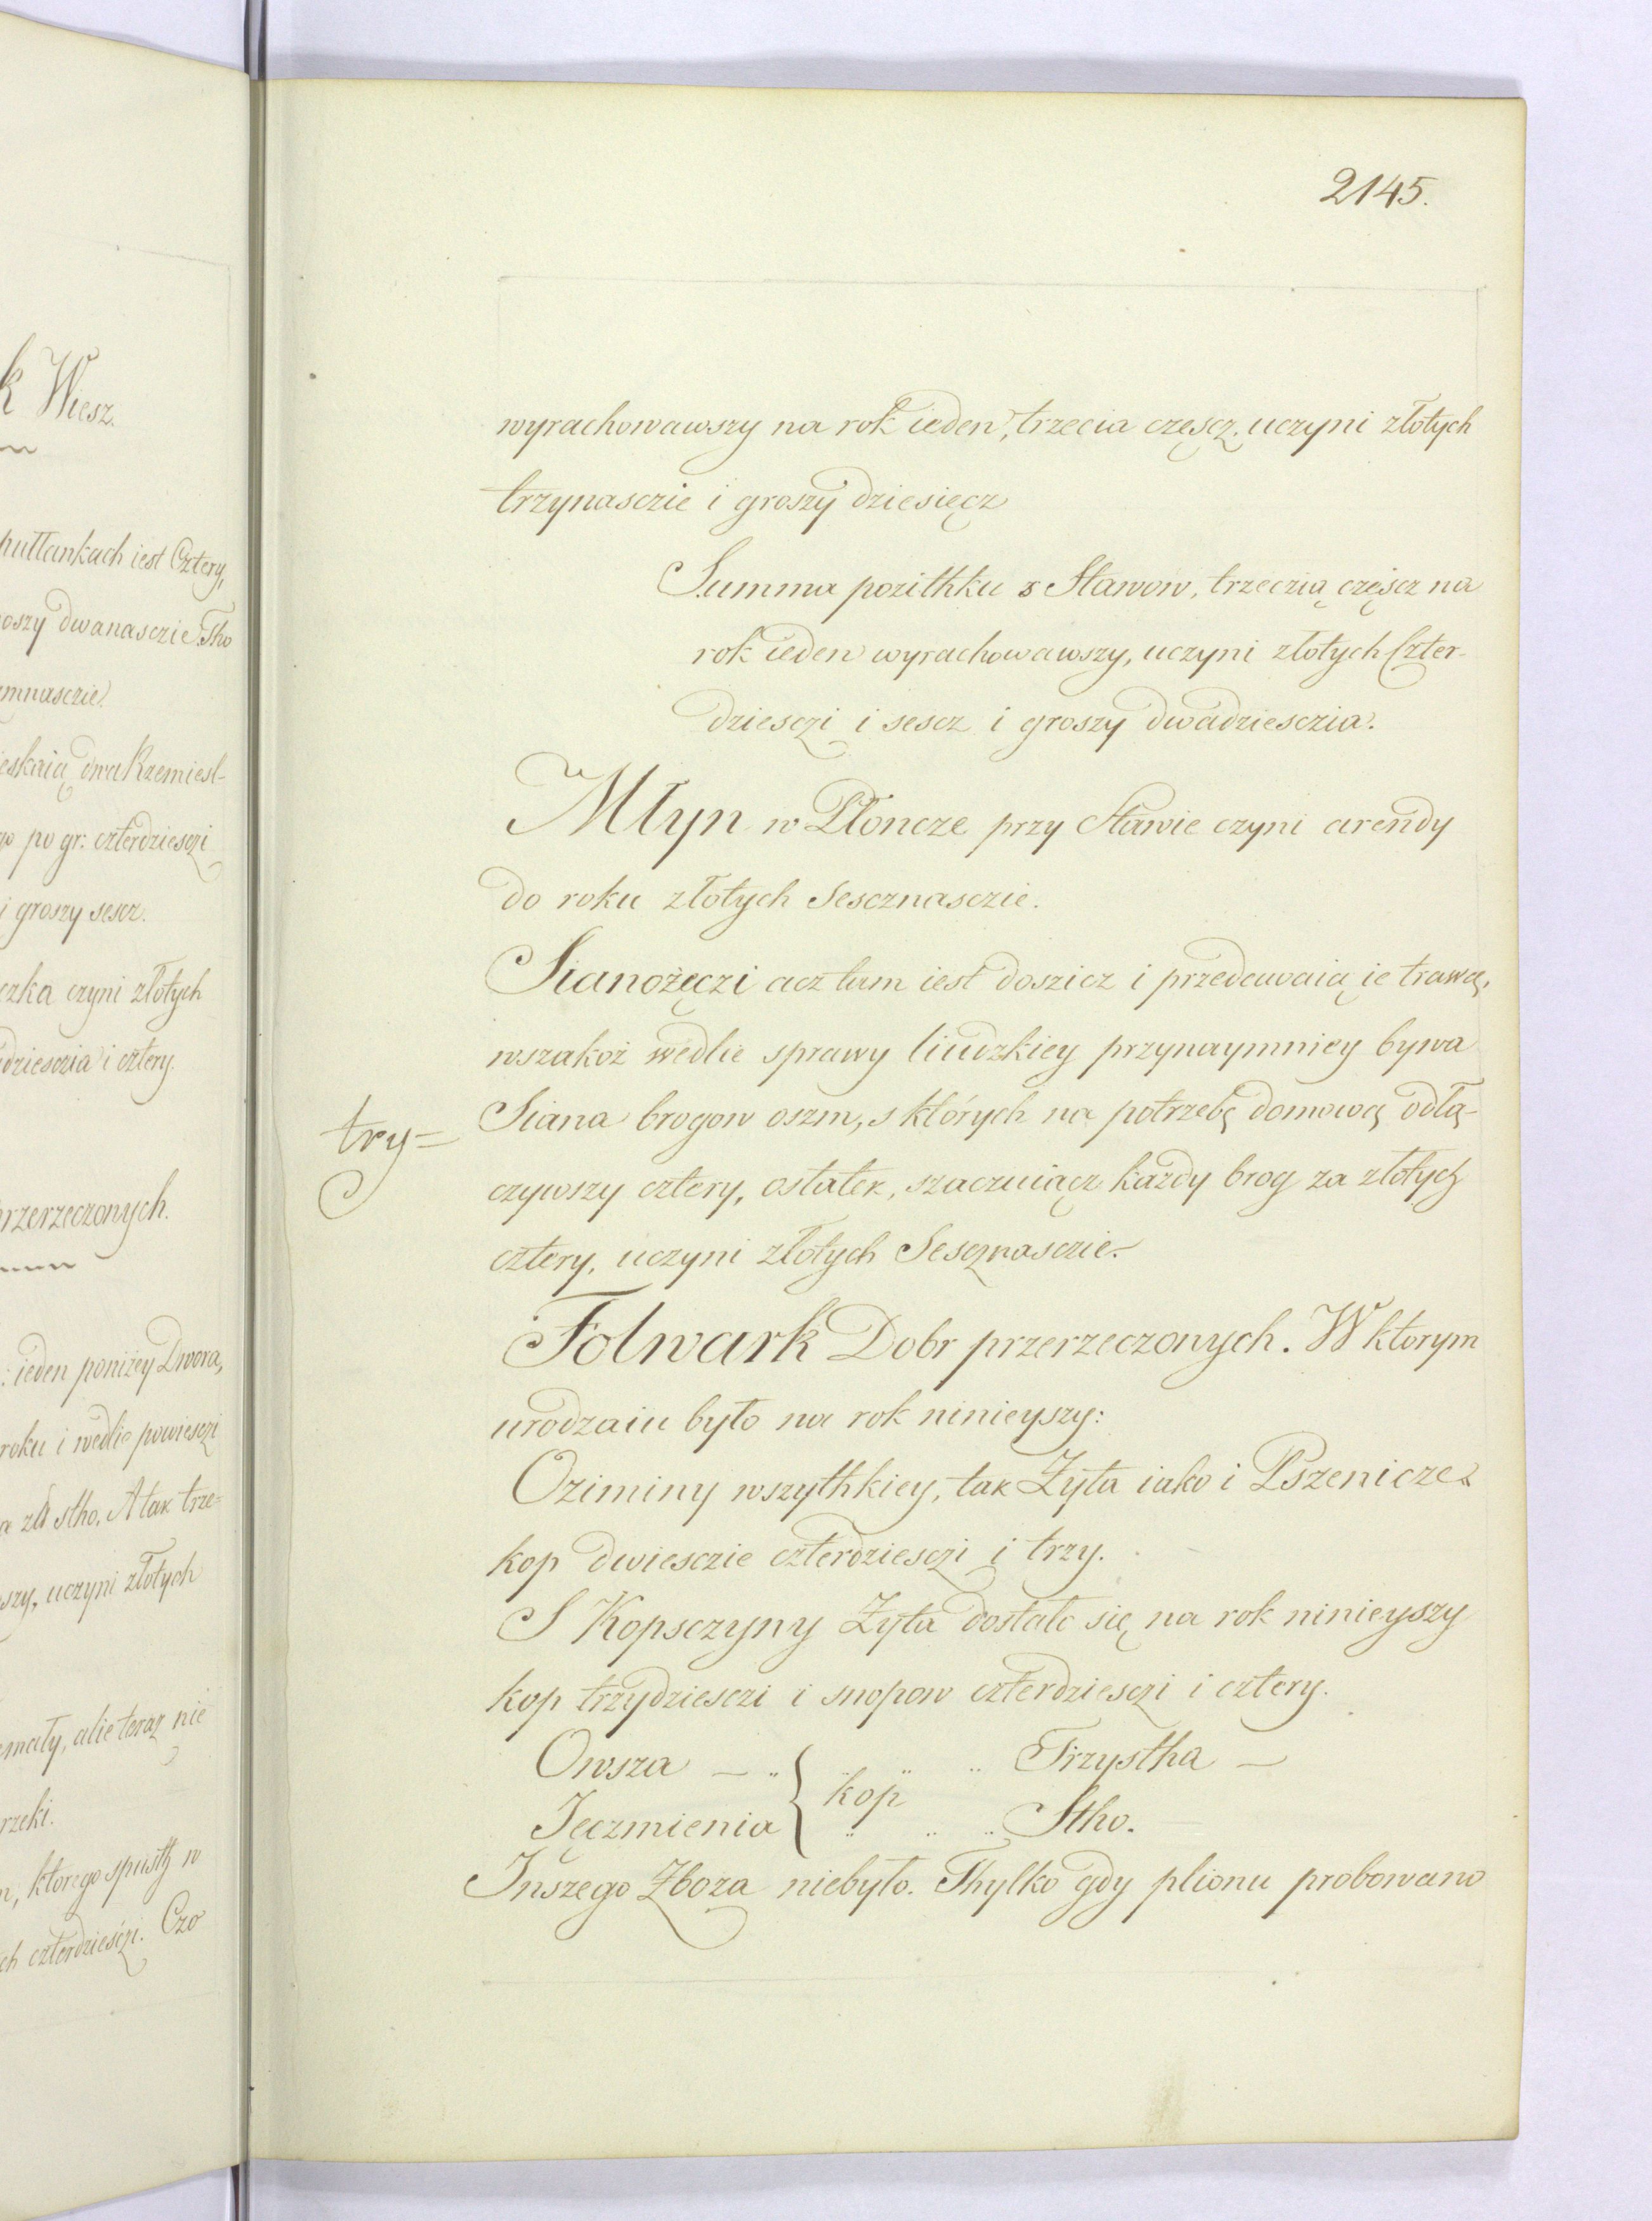 k Wiesz.
puttankach iest Cztery,
oszy dwanasczie. Tho
mnasczie.
eskaią dwa Rzemiesl-
po gr: czterdziesczi
i groszy sescz.
czka czyni złotych
dziesczia i cztery.
przerzeczonych.
: ieden poniżey Dwora,
roku i wedlie powiesczi
a za stho. A tak trze=
szy, uczyni złotych
mały, alie teraz nie
rzeki.
, ktorego spustą w
ch czterdzieści. Czo
2145.
wyrachowawszy na rok ieden, trzecia częscz, uczyni złotych
trzynasczie i groszy dziesięcz
Summa pozithku z Stawow, trzeczią częscz na
rok ieden wyrachowawszy, uczyni złotych Czter-
dziesczi i sescz i groszy dwadziesczia.
Młyn w Płoncze przy Stawie czyni arendy
do roku złotych Sescznasczie.
Sianożęczi acz tam iest doszicz i przedawaią ie trawą,
wszakoż wedlie sprawy liudzkiey przynaymniey bywa
Siana brogow oszm, s których na potrzebę domową odłą-
czywszy cztery, ostatek, szaczuiącz każdy brog za złotych
cztery, uczyni złotych Sescznasczie.
try=
Folwark Dobr przerzeczonych. W ktorym
urodzaiu było na rok ninieyszy:
Oziminy wszythkiey, tak Żyta iako i Pszenicze
kop dwiesczie czterdziesczi i trzy.
S Kopsczyny Żyta dostało się na rok ninieyszy
kop trzydziesczi i snopow czterdziesczi i cztery.
Owsza — „ { kop „ „ Trzystha —
Jęczmienia { „ „ „ Stho.
Inszego Zboża niebyło. Thylko gdy plionu probowano